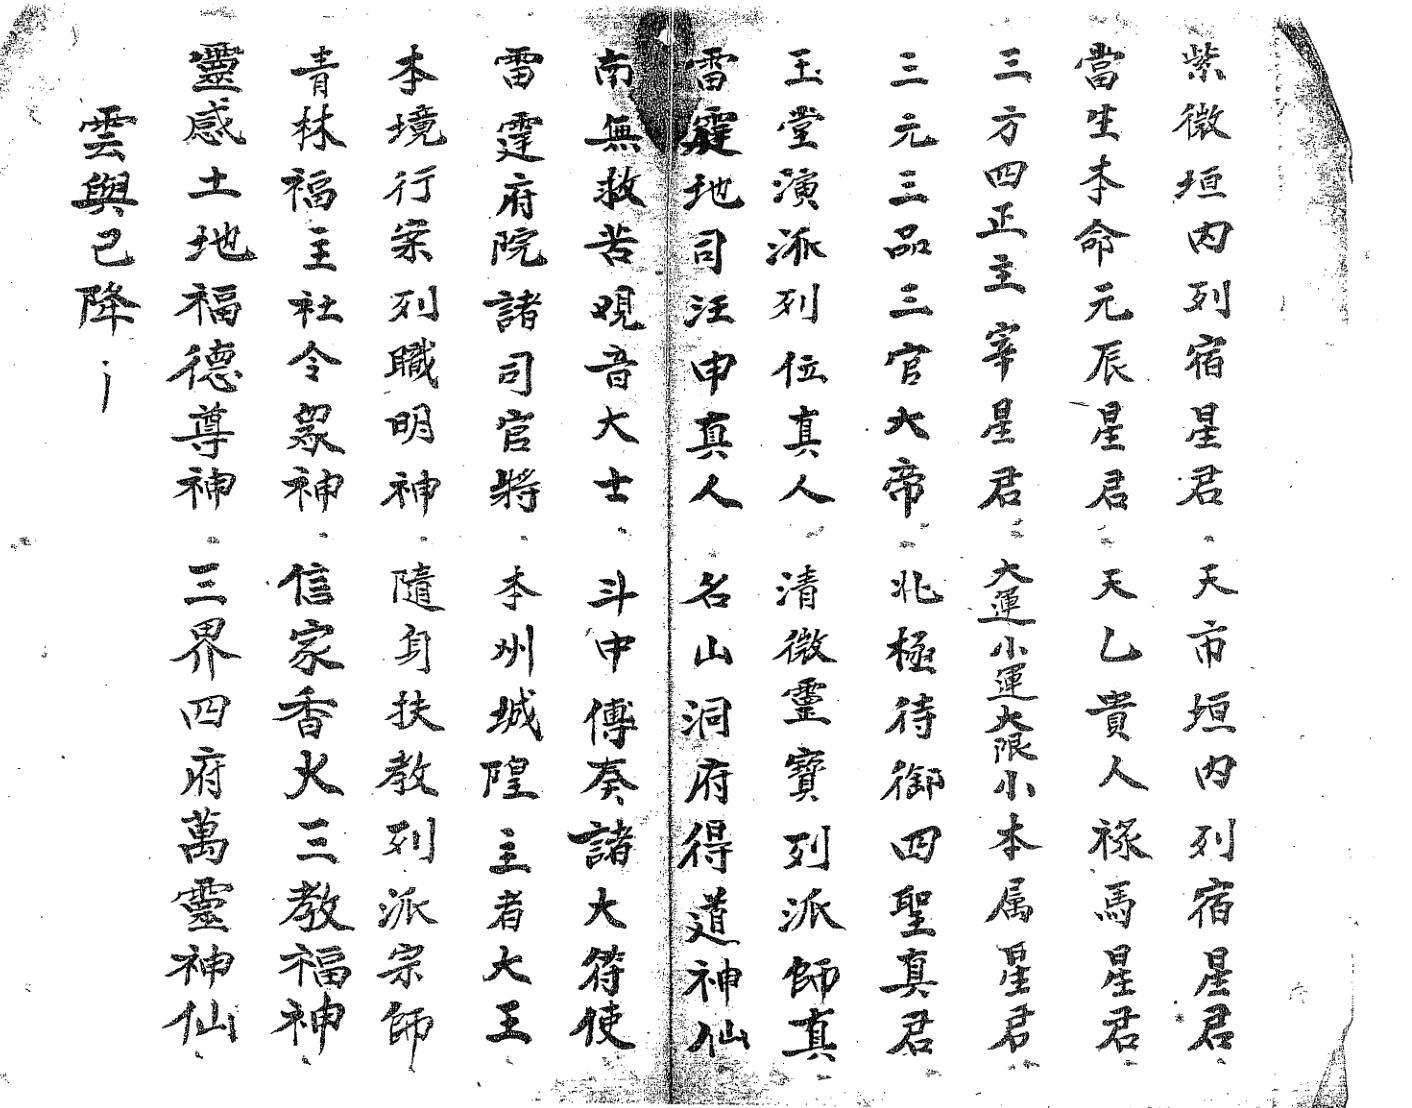 紫微垣内列宿星君天市垣内列宿星君
當生本命元辰星君天乙貴人祿馬星君
三方四正主宰星君大運小運大限小本属星君
三元三品三官大帝北極待御四聖真君
玉堂演派列位真人清微靈寶列派師真
雷霆地司汪申真人名山洞府得道神仙
南無救苦覌音大士斗中傳奏諸大符使
雷霆府院諸司官將本州城隍主者大王
本境行案列職明神隨身扶教列派宗師
青林福主社令衆神信家香火三教福神
靈感土地福德尊神三界四府萬靈神仙
雲與已降